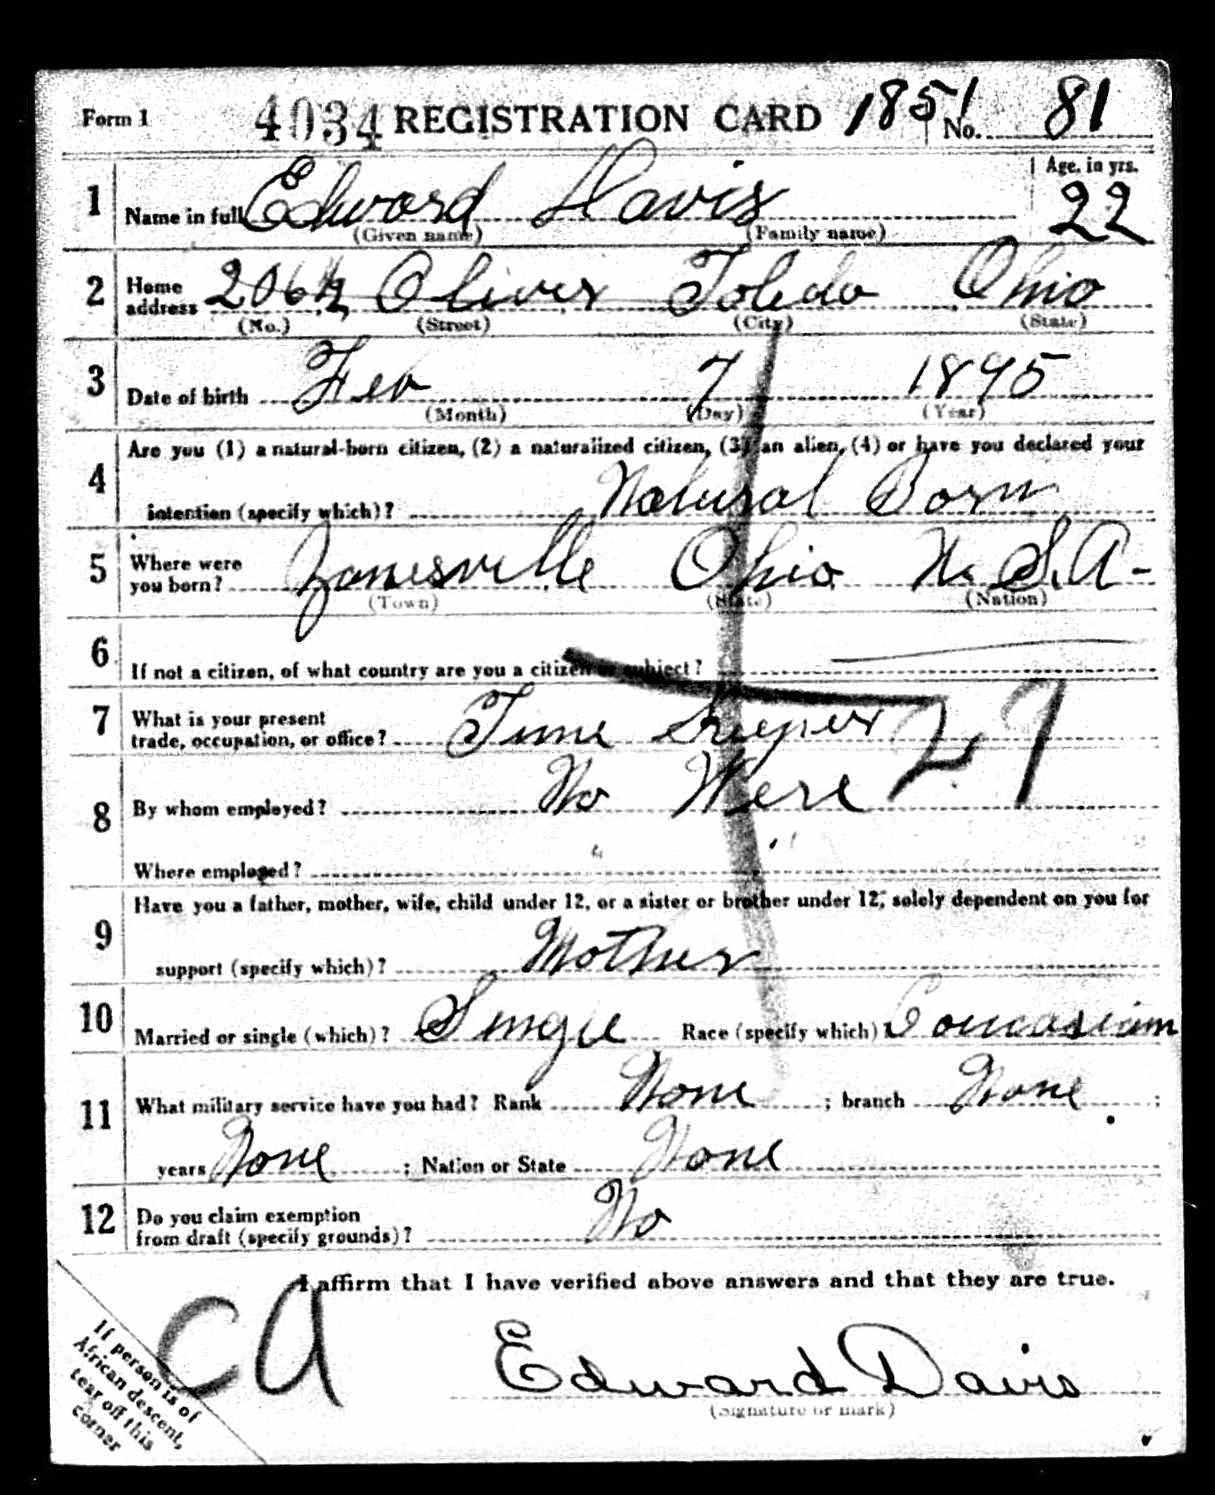 Form 1 4034 REGISTRATION CARD 1851 No. 81
1 Name in full Edward Davis Age, in yrs. 22
(Given name) (Family name)
2 Home address 206½ Oliver Toledo Ohio
(No.) (Street) (City) (State)
3 Date of birth Feb 7 1895
(Month) (Day) (Year)
4 Are you (1) a natural-born citizen, (2) a naturalized citizen, (3) an alien, (4) or have you declared your
intention (specify which)? Natural Born
5 Where were you born? Zanesville Ohio U.S.A-
(Town) (State) (Nation)
6 If not a citizen, of what country are you a citizen or subject?
7 What is your present
trade, occupation, or office? Time Keeper 29
8 By whom employed? No Were
Where employed?
9 Have you a father, mother, wife, child under 12, or a sister or brother under 12, solely dependent on you for
support (specify which)? Mother
10 Married or single (which)? Single Race (specify which)? Coucasiam
11 What military service have you had? Rank None ; branch None ;
years None ; Nation or State None
12 Do you claim exemption
from draft (specify grounds)? No
I affirm that I have verified above answers and that they are true.
CA
If person is of
African descent,
tear off this
corner
Edward Davis
(Signature or mark)